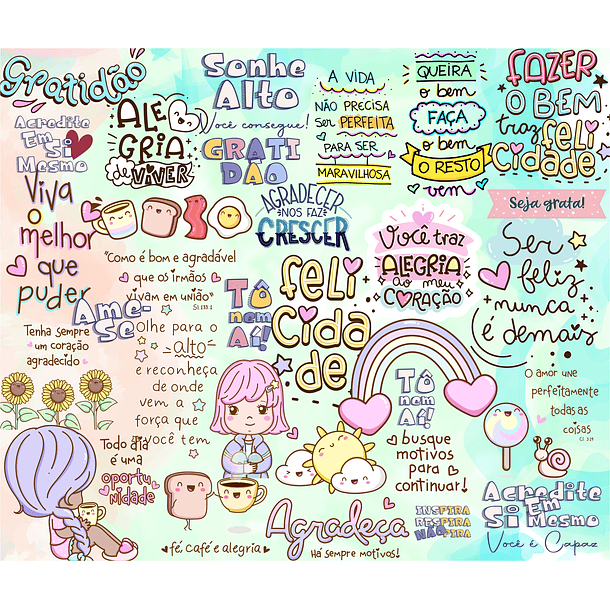 Gratidão
Acredite
Em
Si
Mesmo
ALE
GRIA
de VIVER
Sonhe
Alto
Você consegue!
GRATI
DÃO
A VIDA
NÃO PRECISA
Ser PERFEITA
PARA SER
MARAVILHOSA
QUEIRA
o bem
FAÇA
o bem
O RESTO
vem
FAZER
O BEM
traz
feli
cidade
Seja grata!
Viva
o
melhor
que
puder
AGRADECER
NOS FAZ
CRESCER
Você traz
ALEGRIA
ao meu
CORAÇÃO
Ser
feliz
nunca
é demais
"Como é bom e agradável
que os irmãos
vivam em união"
Sl 133:1
Ame-
Se
Tô
nem
Aí!
feli
cida
de
Tenha sempre
um coração
agradecido
Olhe para o
alto
e reconheça
de onde
vem a
força que
você tem
Tô
nem
Aí!
busque
motivos
para
continuar!
O amor une
perfeitamente
todas as
coisas
Cl 3:14
Todo dia
é uma
oportu
nidade
fé, café e alegria
Agradeça
Há sempre motivos!
INSPIRA
RESPIRA
NÃO PIRA
Acredite
Em
Si Mesmo
Você é Capaz